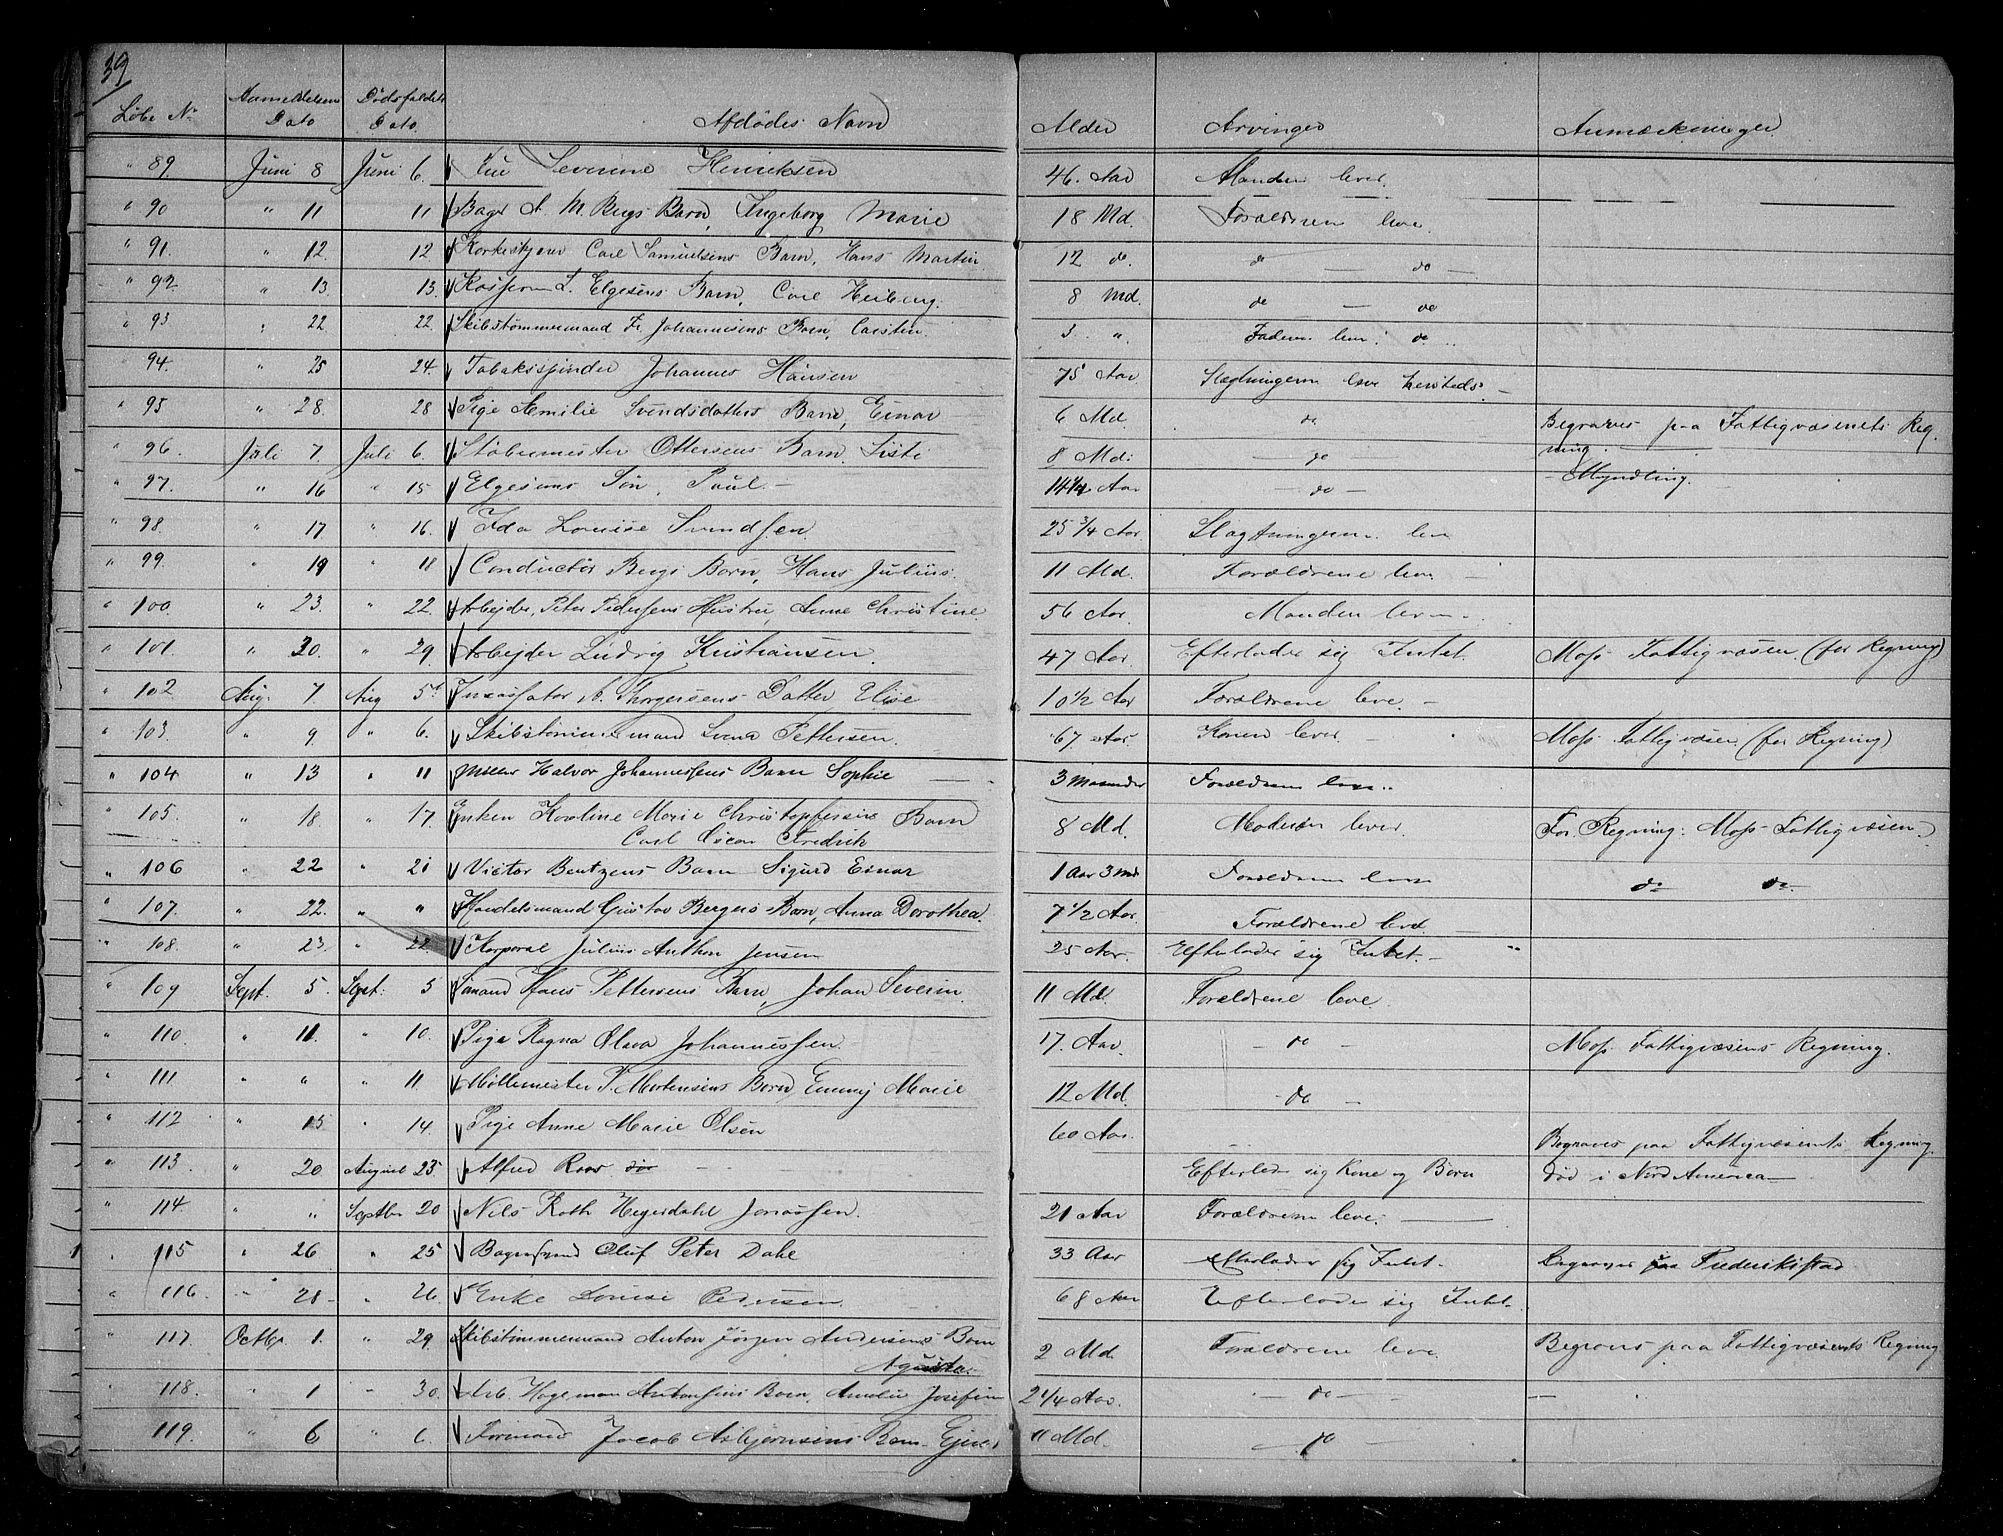 39
Löbe No Anmeldelsens Dato Dödsfaldets Dato Afdödes Navn Alder Arvinger Anmærkninger
" 89. Juni 8 Juni 6. Severine Henriksen 46. Aar Manden lever.
" 90 " 11 11 Bager A. M. Bergs Barn, Ingeborg Marie 18 Md. Forældrene leve.
" 91. " 12. 12 Carl Samuelsens Barn, Hans Martin 12 do. do — do —
" 92. " 13. 13. L. Elgesens Barn, Carl Heiberg. 8 Md. do — do
" 93 " 22 22. Skibstømmermand Fr. Johannesens Barn, Carsten. 3. ". Faderen lever. do
" 94. " 25 24. Tobaksspinder Johannes Hansen 75 Aar Slægtningerne leve hersteds. —
" 95 " 28. 28 Pige Amilie Svendsdatters Barn, Einar 6 Md. do Begraves paa Fattigvæsenets Reg-
ning. —
" 96. Juli 7. Juli 6. Støbemester Ottersens Barn, Sisti 8 Md: — do
" 97. " 16 " 15 Elgesens Søn, Paul. — 14 1/4 Aar — do — — Myndling.
" 98. " 17 " 16. Ida Louise Svendsen. 25 3/4 Aar Slagtningerne leve
" 99. " 19 " 18 Conductør Bergs Barn, Hans Julius. 11 Md. Forældrene leve. —
" 100. " 23. " 22 Arbejder, Peter Pedersens Hustru, Anne Christine 56 Aar. Manden lever —
" 101. " 30. " 29 Arbejder Ludvig Kristiansen. 47 Aar. Efterlader sig Intet. Moss Fattigvæsen (for Regning)
" 102 Aug. 7. Aug 5 A. Thorgersens Datter Elise 10 1/2 Aar Forældrene leve. —
" 103. " 9. " 6. Skibstømmermand Svend Pettersen. 67 Aar. Konen lever. — Moss Fattigvæsen (for Regning)
" 104 " 13 " 11 Møller Halvor Johannesens Barn Sophie — 3 Maaneder Forældrene leve.
" 105. " 18 " 17. Enken Karoline Marie Christophersens Barn
Carl Oscar Fredrik 8 Md. Moderen lever. For Regning: Moss Fattigvæsen.
" 106 " 22 " 21 Victor Bentzens Barn Sigurd Einar 1 Aar 3 Md Forældrene leve do do
" 107. " 22. " " Handelsmand Gustav Bergers Barn, Anna Dorothea. 7 1/2 Aar. Forældrene leve
" 108. " 23. " 22. Korporal Julius Anthon Jensen 25 Aar. Efterlader sig Intet. — "
" 109 Sept. 5. Sept: 5 Sømand Hans Pettersens Barn, Johan Severin. 11 Md. Forældrene leve.
" 110. " 11. " 10. Pige Ragna Olava Johannessen — 17. Aar. — do — Moss Fattigvæsens Regning.
" 111 " " " 11. Møllemester P. Mortensens Barn, Emmy Marie 12 Md. — do —
" 112 " 15 " 14. Pige Anne Marie Olsen 60 Aar. Begraves paa Fattigvæsenets Regning.
" 113. " 20 August 23 Alfred Roos dør — Efterlader sig Kone og Børn død i Nord America —
" 114 " " Septbr 20 Nils Roth Hegerdahl Jonassen. 21 Aar Forældrene leve. —
" 115 " 26 " 25 Bagersvend Oluf Peter Dahl 33 Aar Efterlader sig Intet. Begraves paa Frederikstad
" 116. " 28 — " 26. Enke Louise Pedersen. 68 Aar Efterlader sig Intet.
" 117 Octbr 1. " 29. Skibstømmermand Anton Jörgen Andersens Barn
Agusta. 2 Md. Forældrene leve. Begraves paa Fattigvæsenets Regning
" 118. " 1 " 30. Arb. Hageman Antonsens Barn, Amalie Josefine 2 1/4 Aar. — do — —
" 119. " 6 " 6. Formand Jacob Asbjørnsens Barn 11 Md. — do —